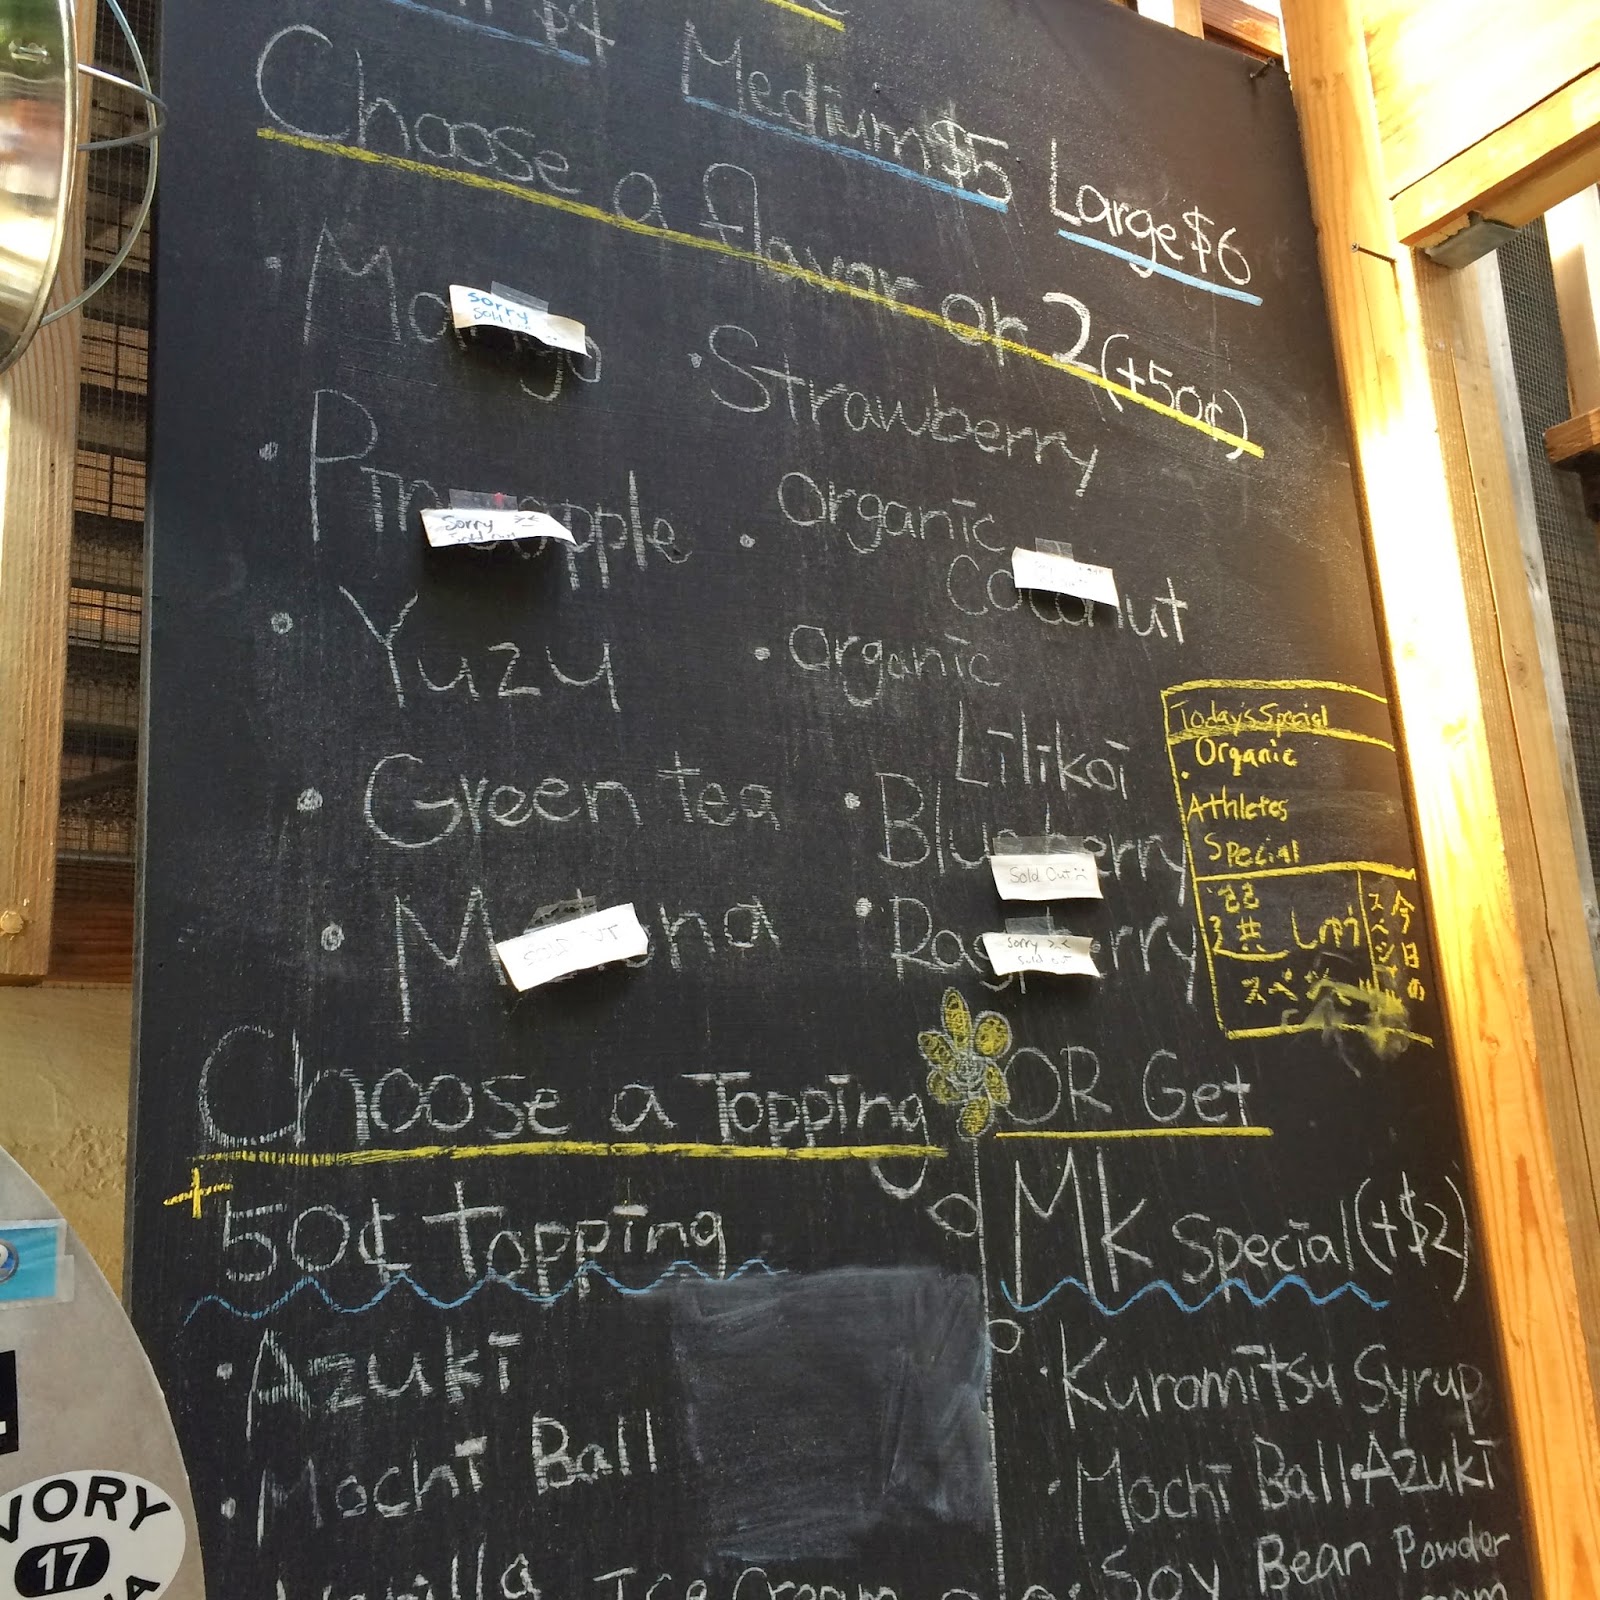 $4 Medium $5 Large $6
Choose a flavor or 2 (+50¢)
• Mango
sorry
Sold Out
• Strawberry
• Pineapple
Sorry ><
Sold Out
• organic
Coconut
• Yuzu
• organic
Lilikoi
• Green tea
• Blueberry
Sold Out
•
SOLD OUT
• Raspberry
Sorry ><
Sold out
Today's Special
• Organic
Athletes
Special
今日の
スペシャル
しゅう
スペシャル
Choose a Topping
+50¢ topping
• Azuki
• Mochi Ball
Vanilla Ice Cream
OR Get
MK Special (+$2)
• Kuromitsu Syrup
• Mochi Ball • Azuki
• Soy Bean Powder
VORY
17